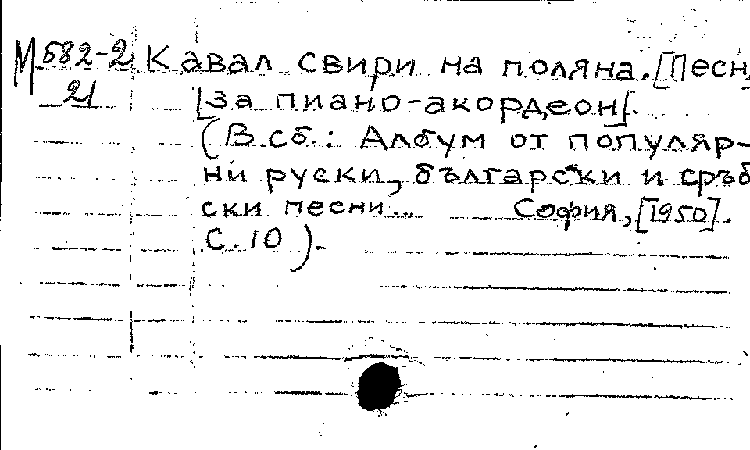 М 582-2 Кавал свири на поляна. [Песн
21 [за пиано-акордеон].
(В сб.: Албум от популяр-
ни руски, български и сръб
ски песни... София, [1950].
С. 10).